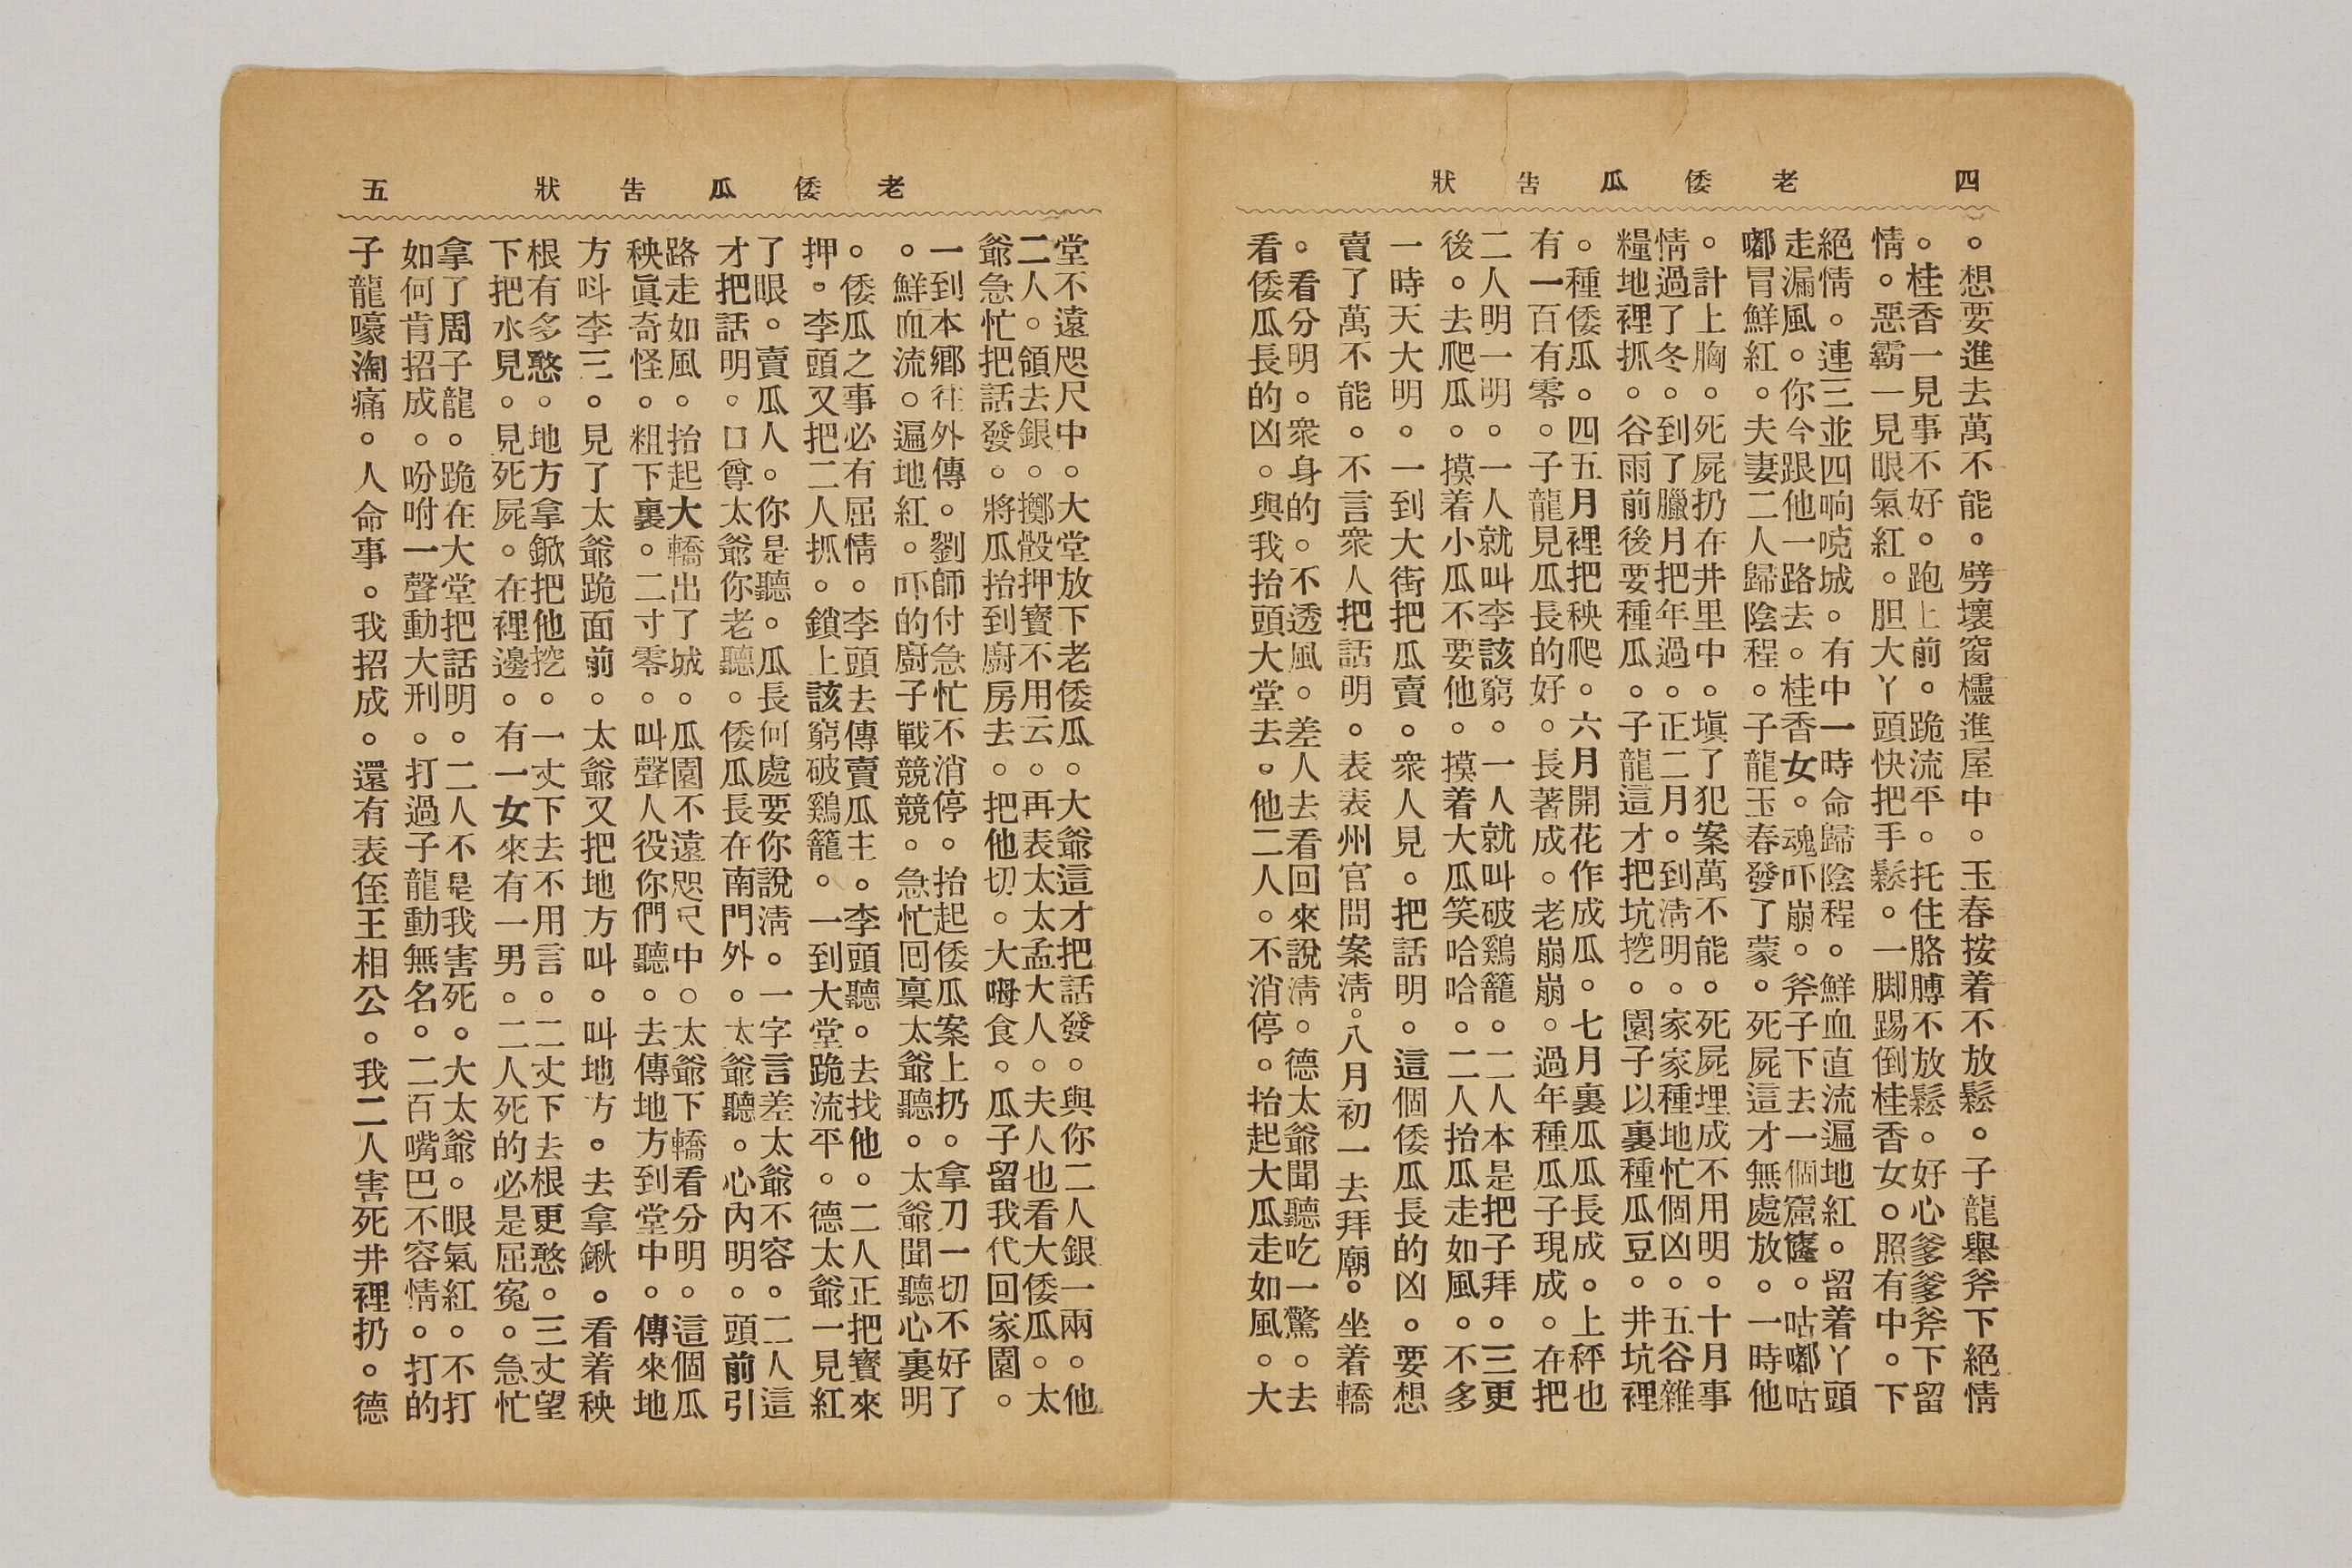 四　老倭瓜告狀
。想要進去萬不能。劈壞窗櫺進屋中。玉春按着不放鬆。子龍舉斧下絕情
。桂香一見事不好。跑上前。跪流平。托住胳膊不放鬆。好心爹爹斧下留
情。惡霸一見眼氣紅。胆大丫頭快把手鬆。一脚踢倒桂香女。照有中。下
絕情。連三並四响唍城。有中一時命歸陰程。鮮血直流遍地紅。留着丫頭
走漏風。你今跟他一路去。桂香女。魂吓崩。斧子下去一個窟窿。咕嘟咕
嘟冒鮮紅。夫妻二人歸陰程。子龍玉春發了蒙。死屍這才無處放。一時他
。計上胸。死屍扔在井里中。塡了犯案萬不能。死屍埋成不用明。十月事
情過了冬。到了臘月把年過。正二月。到淸明。家家種地忙個凶。五谷雜
糧地裡抓。谷雨前後要種瓜。子龍這才把坑挖。園子以裏種瓜豆。井坑裡
。種倭瓜。四五月裡把秧爬。六月開花作成瓜。七月裏瓜瓜長成。上秤也
有一百有零。子龍見瓜長的好。長著成。老崩崩。過年種瓜子現成。在把
二人明一明。一人就叫李該窮。一人就叫破鷄籠。二人本是把子拜。三更
後。去爬瓜。摸着小瓜不要他。摸着大瓜笑哈哈。二人抬瓜走如風。不多
一時天大明。一到大街把瓜賣。衆人見。把話明。這個倭瓜長的凶。要想
賣了萬不能。不言衆人把話明。表表州官問案淸。八月初一去拜廟。坐着轎
。看分明。衆身的。不透風。差人去看回來說淸。德太爺聞聽吃一驚。去
看倭瓜長的凶。與我抬頭大堂去。他二人。不消停。抬起大瓜走如風。大
老倭瓜告狀　五
堂不遠咫尺中。大堂放下老倭瓜。大爺這才把話發。與你二人銀一兩。他
二人。領去銀。擲骰押寶不用云。再表太太孟大人。夫人也看大倭瓜。太
爺急忙把話發。將瓜抬到廚房去。把他切。大㖼食。瓜子留我代回家園。
一到本鄉往外傳。劉師付急忙不消停。抬起倭瓜案上扔。拿刀一切不好了
。鮮血流。遍地紅。吓的廚子戰競競。急忙囘稟太爺聽。太爺聞聽心裏明
。倭瓜之事必有屈情。李頭去傳賣瓜主。李頭聽。去找他。二人正把寶來
押。李頭又把二人抓。鎖上該窮破鷄籠。一到大堂跪流平。德太爺一見紅
了眼。賣瓜人。你是聽。瓜長何處要你說淸。一字言差太爺不容。二人這
才把話明。口尊太爺你老聽。倭瓜長在南門外。太爺聽。心內明。頭前引
路走如風。抬起大轎出了城。瓜園不遠咫尺中。太爺下轎看分明。這個瓜
秧眞奇怪。粗下裏。二寸零。叫聲人役你們聽。去傳地方到堂中。傳來地
方呌李三。見了太爺跪面前。太爺又把地方叫。叫地方。去拿鍬。看着秧
根有多憨。地方拿鍁把他挖。一丈下去不用言。二丈下去根更憨。三丈望
下把水見。見死屍。在裡邊。有一女來有一男。二人死的必是屈寃。急忙
拿了周子龍。跪在大堂把話明。二人不是我害死。大太爺。眼氣紅。不打
如何肯招成。吩咐一聲動大刑。打過子龍動無名。二百嘴巴不容情。打的
子龍嚎淘痛。人命事。我招成。還有表侄王相公。我二人害死井裡扔。德